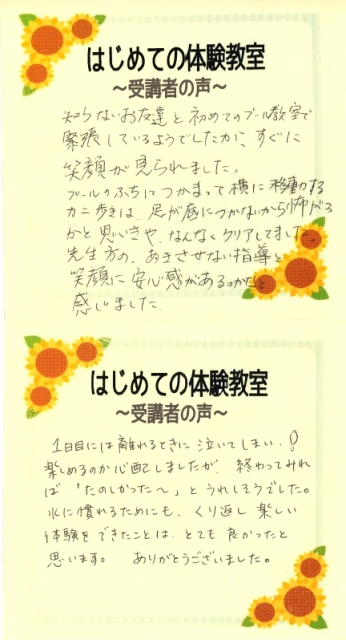 はじめての体験教室
～受講者の声～
知らないお友達と初めてのプール教室で
緊張しているようでしたが、すぐに
笑顔が見られました。
プールのふちにつかまって横に移動する
カニ歩きは、足が底につかないから怖がる
かと思いきや、なんなくクリアしてました。
先生方の、あきさせない指導と
笑顔に安心感があるのかなと
感じました。
はじめての体験教室
～受講者の声～
1日目には離れるときに泣いてしまい、
楽しめるのか心配しましたが、終わってみれ
ば「たのしかった～」とうれしそうでした。
水に慣れるためにも、くり返し楽しい
体験をできたことは、とても良かったと
思います。　ありがとうございました。